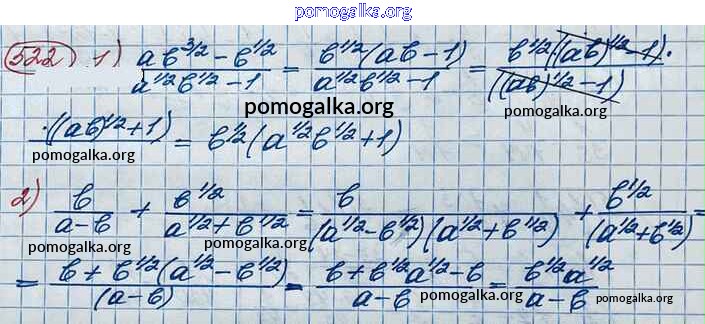 pomogalka.org
522) 1) (ab^{3/2} - b^{1/2})/(a^{1/2}b^{1/2} - 1) = (b^{1/2}(ab - 1))/(a^{1/2}b^{1/2} - 1) = (b^{1/2}((ab)^{1/2} - 1)·)/(((ab)^{1/2} - 1))
pomogalka.org
·((ab)^{1/2} + 1) = b^{1/2}(a^{1/2}b^{1/2} + 1)
pomogalka.org pomogalka.org
2) b/(a - b) + b^{1/2}/(a^{1/2} + b^{1/2}) = b/((a^{1/2} - b^{1/2})(a^{1/2} + b^{1/2})) + b^{1/2}/((a^{1/2} + b^{1/2})) =
pomogalka.org pomogalka.org pomogalka.org
= (b + b^{1/2}(a^{1/2} - b^{1/2}))/((a - b)) = (b + b^{1/2}a^{1/2} - b)/(a - b) = (b^{1/2}a^{1/2})/(a - b)
pomogalka.org pomogalka.org